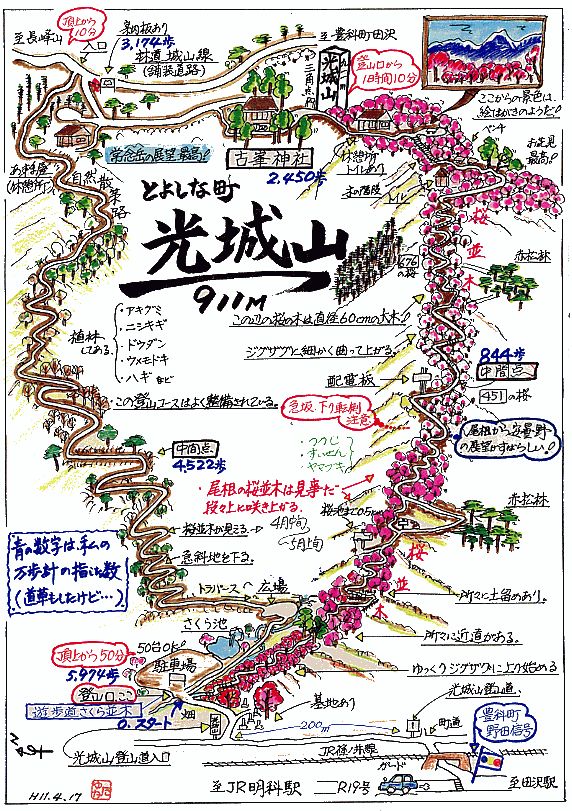 至長峰山
頂上から
10分
入口
案内板あり
3,174歩
林道 城山線
(舗装道路)
至豊科町田沢
光城山
九一二m
三角点
登山口から
1時間10分
ここからの景色は、
絵はがきのようだ!
ベンチ
お花見
最高!
常念岳の展望最高!
古峯神社
2,450歩
休憩所
トイレあり
木の階段
トイレ
あずま屋
(休憩所)
自然散策路
とよしな町
光城山
911M
476
の桜
桜並木
赤松林
この辺の桜の木は直径60cmの大木!!
ジグザグに細かく曲って上がる。
844歩
中間点
451の桜
配電板
植林
してある。
・アキグミ
・ニシキギ
・ドウダン
・ウメモドキ
・ハギ など
この登山コースはよく整備されている。
急坂、下り転倒
注意
尾根から安曇野
の展望がすばらしい!
・つつじ
・すいせん
・ヤマブキ
中間点
4,522歩
・尾根の桜並木は見事だ
段々上に咲き上がる。
4月中旬〜
5月上旬
桜池まで0.5km
赤松林
桜並木が見える。
急斜地を下る。
青の数字は、私の
万歩計の指した数
(道草もしたけど…)
トラバース
広場
桜並木
所々に土留めあり。
所々に近道がある。
ゆっくりジグザグに上り始める
さくら池
50台OK!
駐車場
頂上から50分
5,974歩
登山口ここ
遊歩道さくら並木
0.スタート
畑
墓地あり
光城山登山道
町道
200m
豊科町
野田信号
光城山登山道入口
JR篠ノ井線
ガード
至JR明科駅
R19号
至田沢駅
H11.4.17